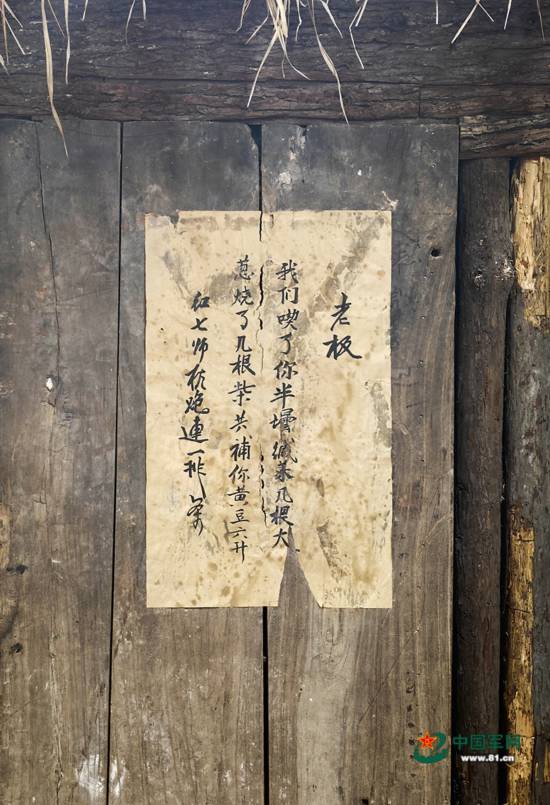 老板
我们喫了你半壜咸菜几根大
葱烧了几根柴共补你黄豆六升
红七师机炮連一排
中国军网
www.81.cn